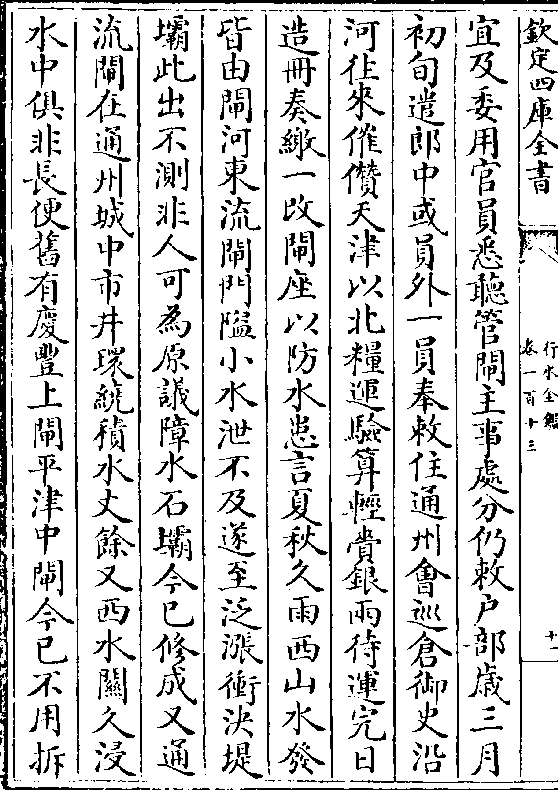 欽定四庫全書
行水金鑑
卷一百十三
十一
宜及委用官員悉聽管閘主事處分仍敕户部歲三月
初旬遣郎中或員外一員奉敕住通州會巡倉御史沿
河往來催儹天津以北糧運驗算輕賫銀兩待運完日
造冊奏繳一改閘座以防水患言夏秋久雨西山水發
皆由閘河東流閘門隘小水泄不及遂至泛漲衝決堤
壩此出不測非人可為原議障水石壩今已修成又通
流閘在通州城中市井環繞積水丈餘又西水關久浸
水中俱非長便舊有慶豐上閘平津中閘今已不用拆